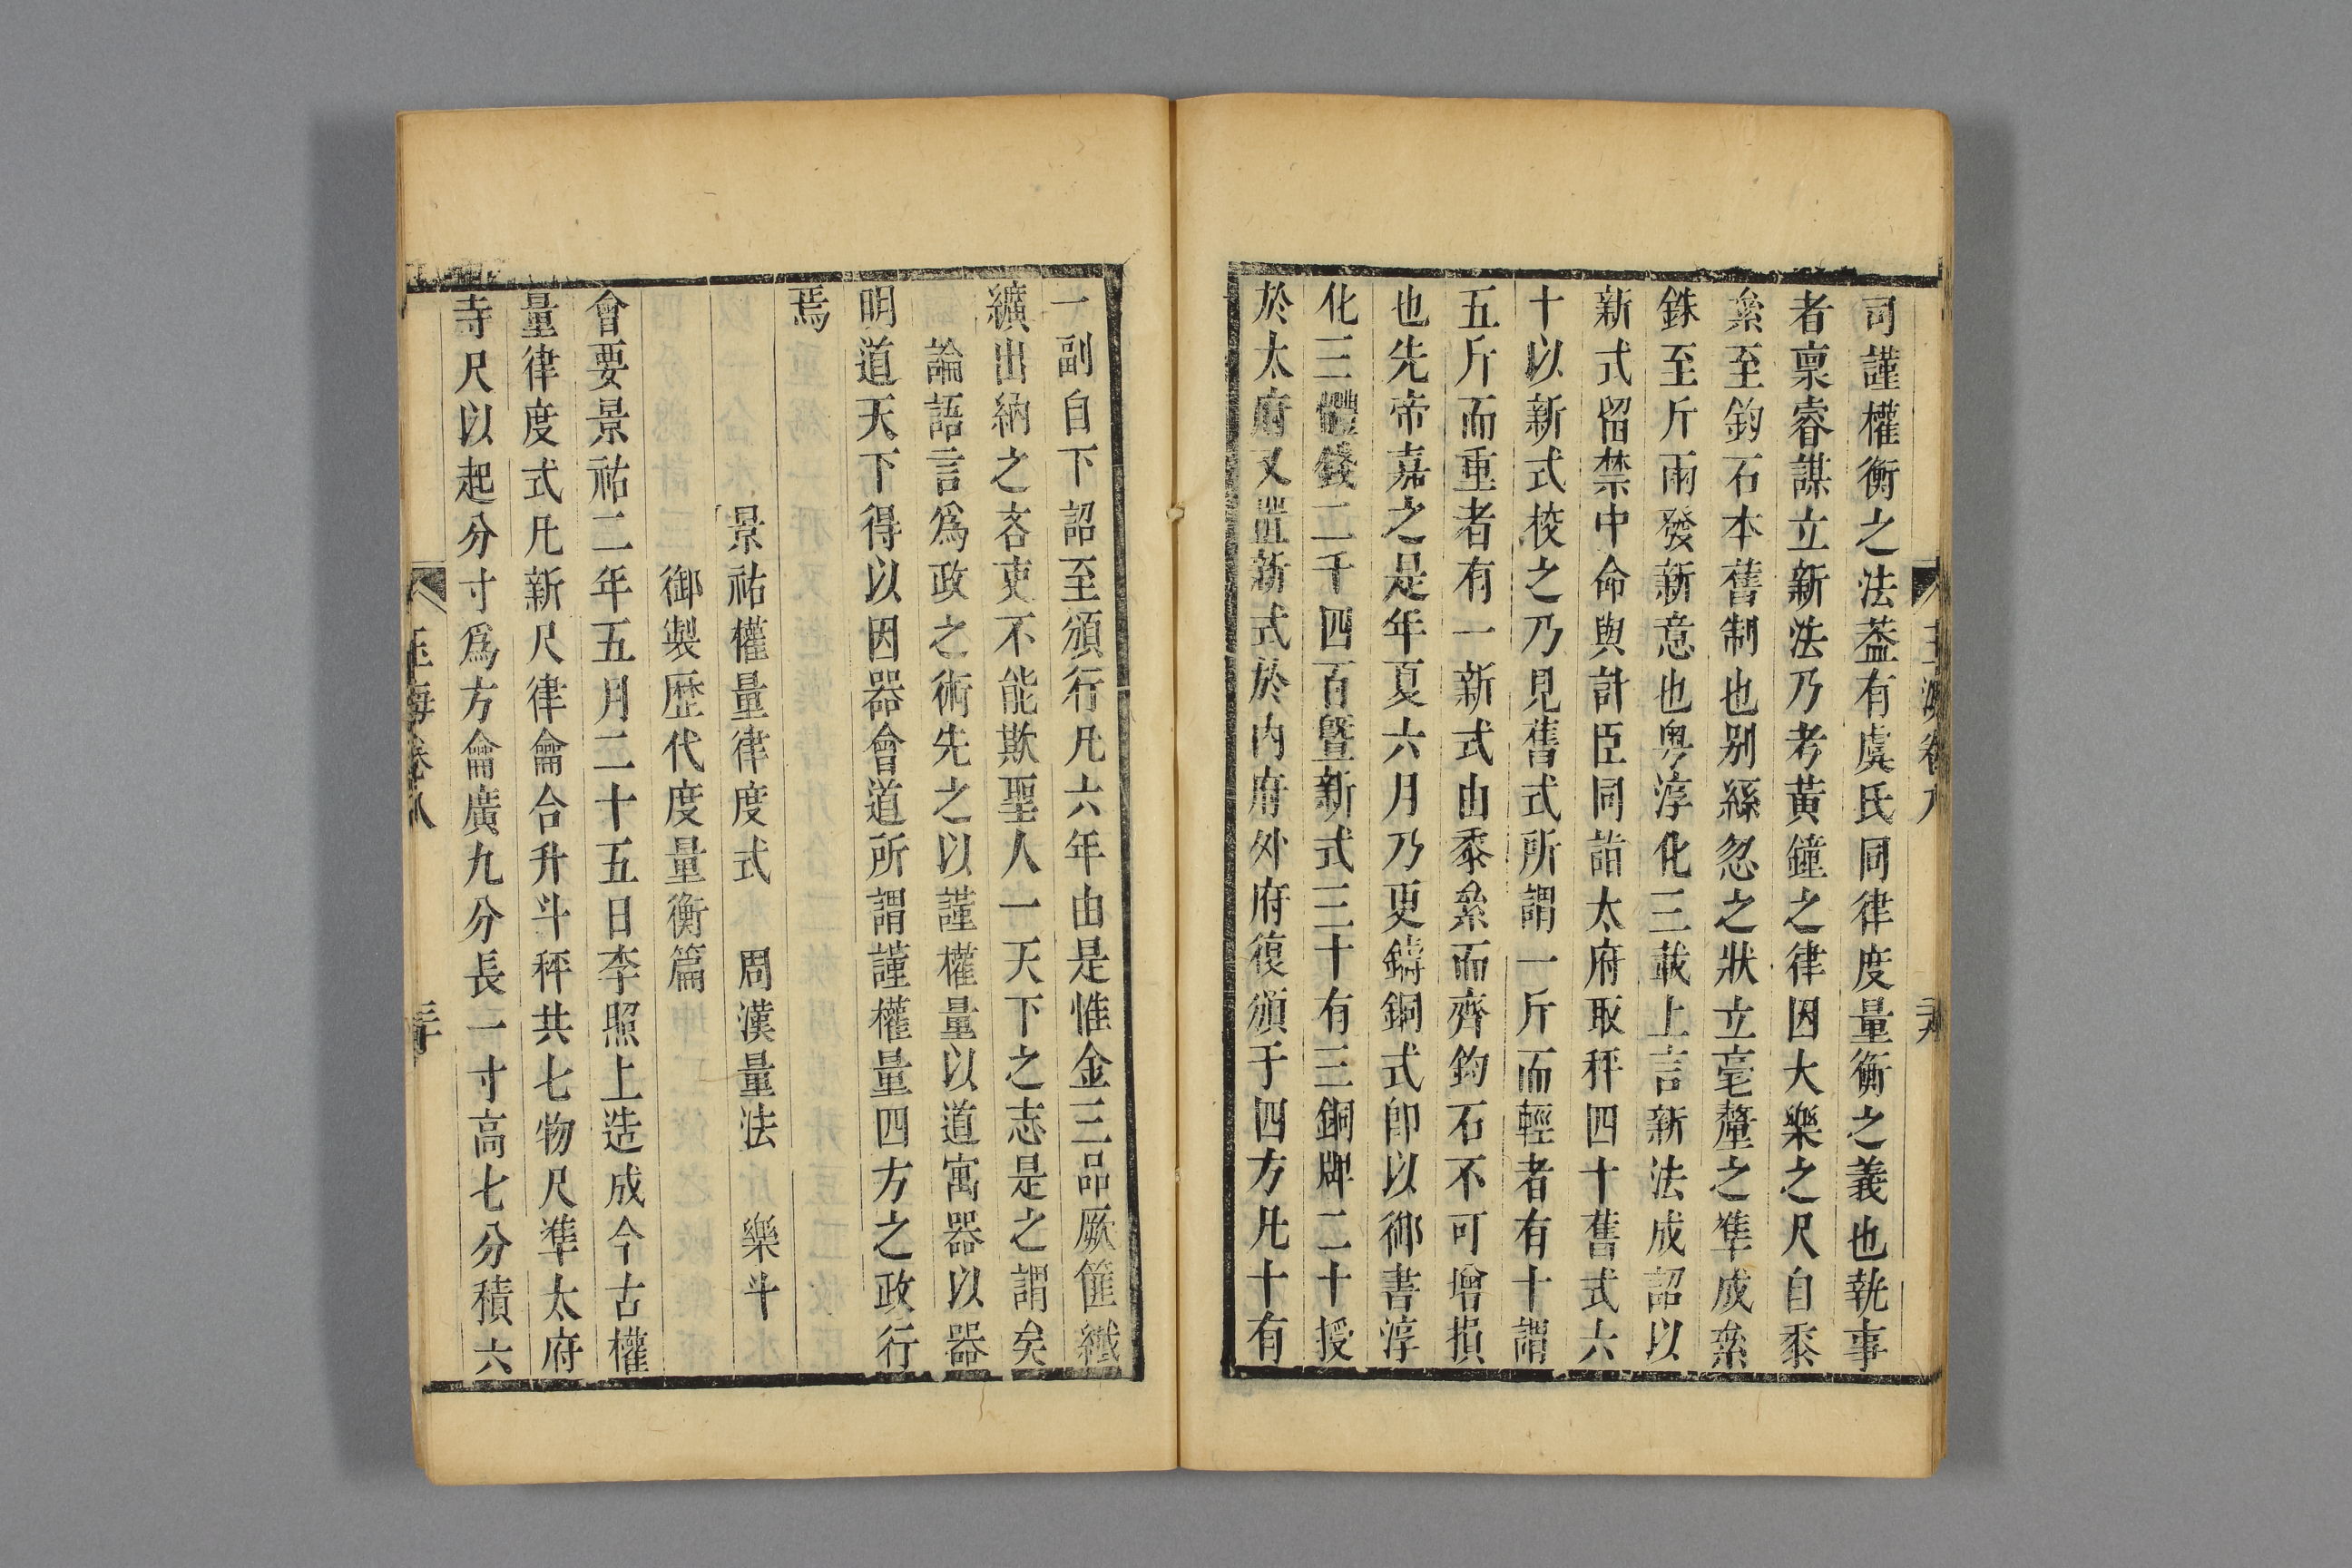 司謹權衡之法葢有虞氏同律度量衡之義也執事
者稟睿謀立新法乃考黃鐘之律因大樂之尺自黍
絫至鈞石本舊制也別絲忽之狀立毫釐之準成絫
銖至斤兩發新意也粤淳化三載上言新法成詔以
新式留禁中命與計臣同詣太府取秤四十舊式六
十以新式校之乃見舊式所謂一斤而輕者有十謂
五斤而重者有一新式由黍絫而齊鈞石不可增損
也先帝嘉之是年夏六月乃更鑄銅式卽以御書淳
化三體錢二千四百曁新式三十有三銅牌二十授
於太府又置新式於內府外府復頒于四方凡十有
一副自下詔至頒行凡六年由是惟金三品厥篚纖
纊出納之吝吏不能欺聖人一天下之志是之謂矣
論語言爲政之術先之以謹權量以道寓器以器
明道天下得以因器會道所謂謹權量四方之政行
焉
景祐權量律度式 周漢量法 樂斗
御製歷代度量衡篇
會要景祐二年五月二十五日李照上造成今古權
量律度式凡新尺律龠合升斗秤共七物尺準太府
寺尺以起分寸爲方龠廣九分長一寸高七分積六
玉海卷八
三十